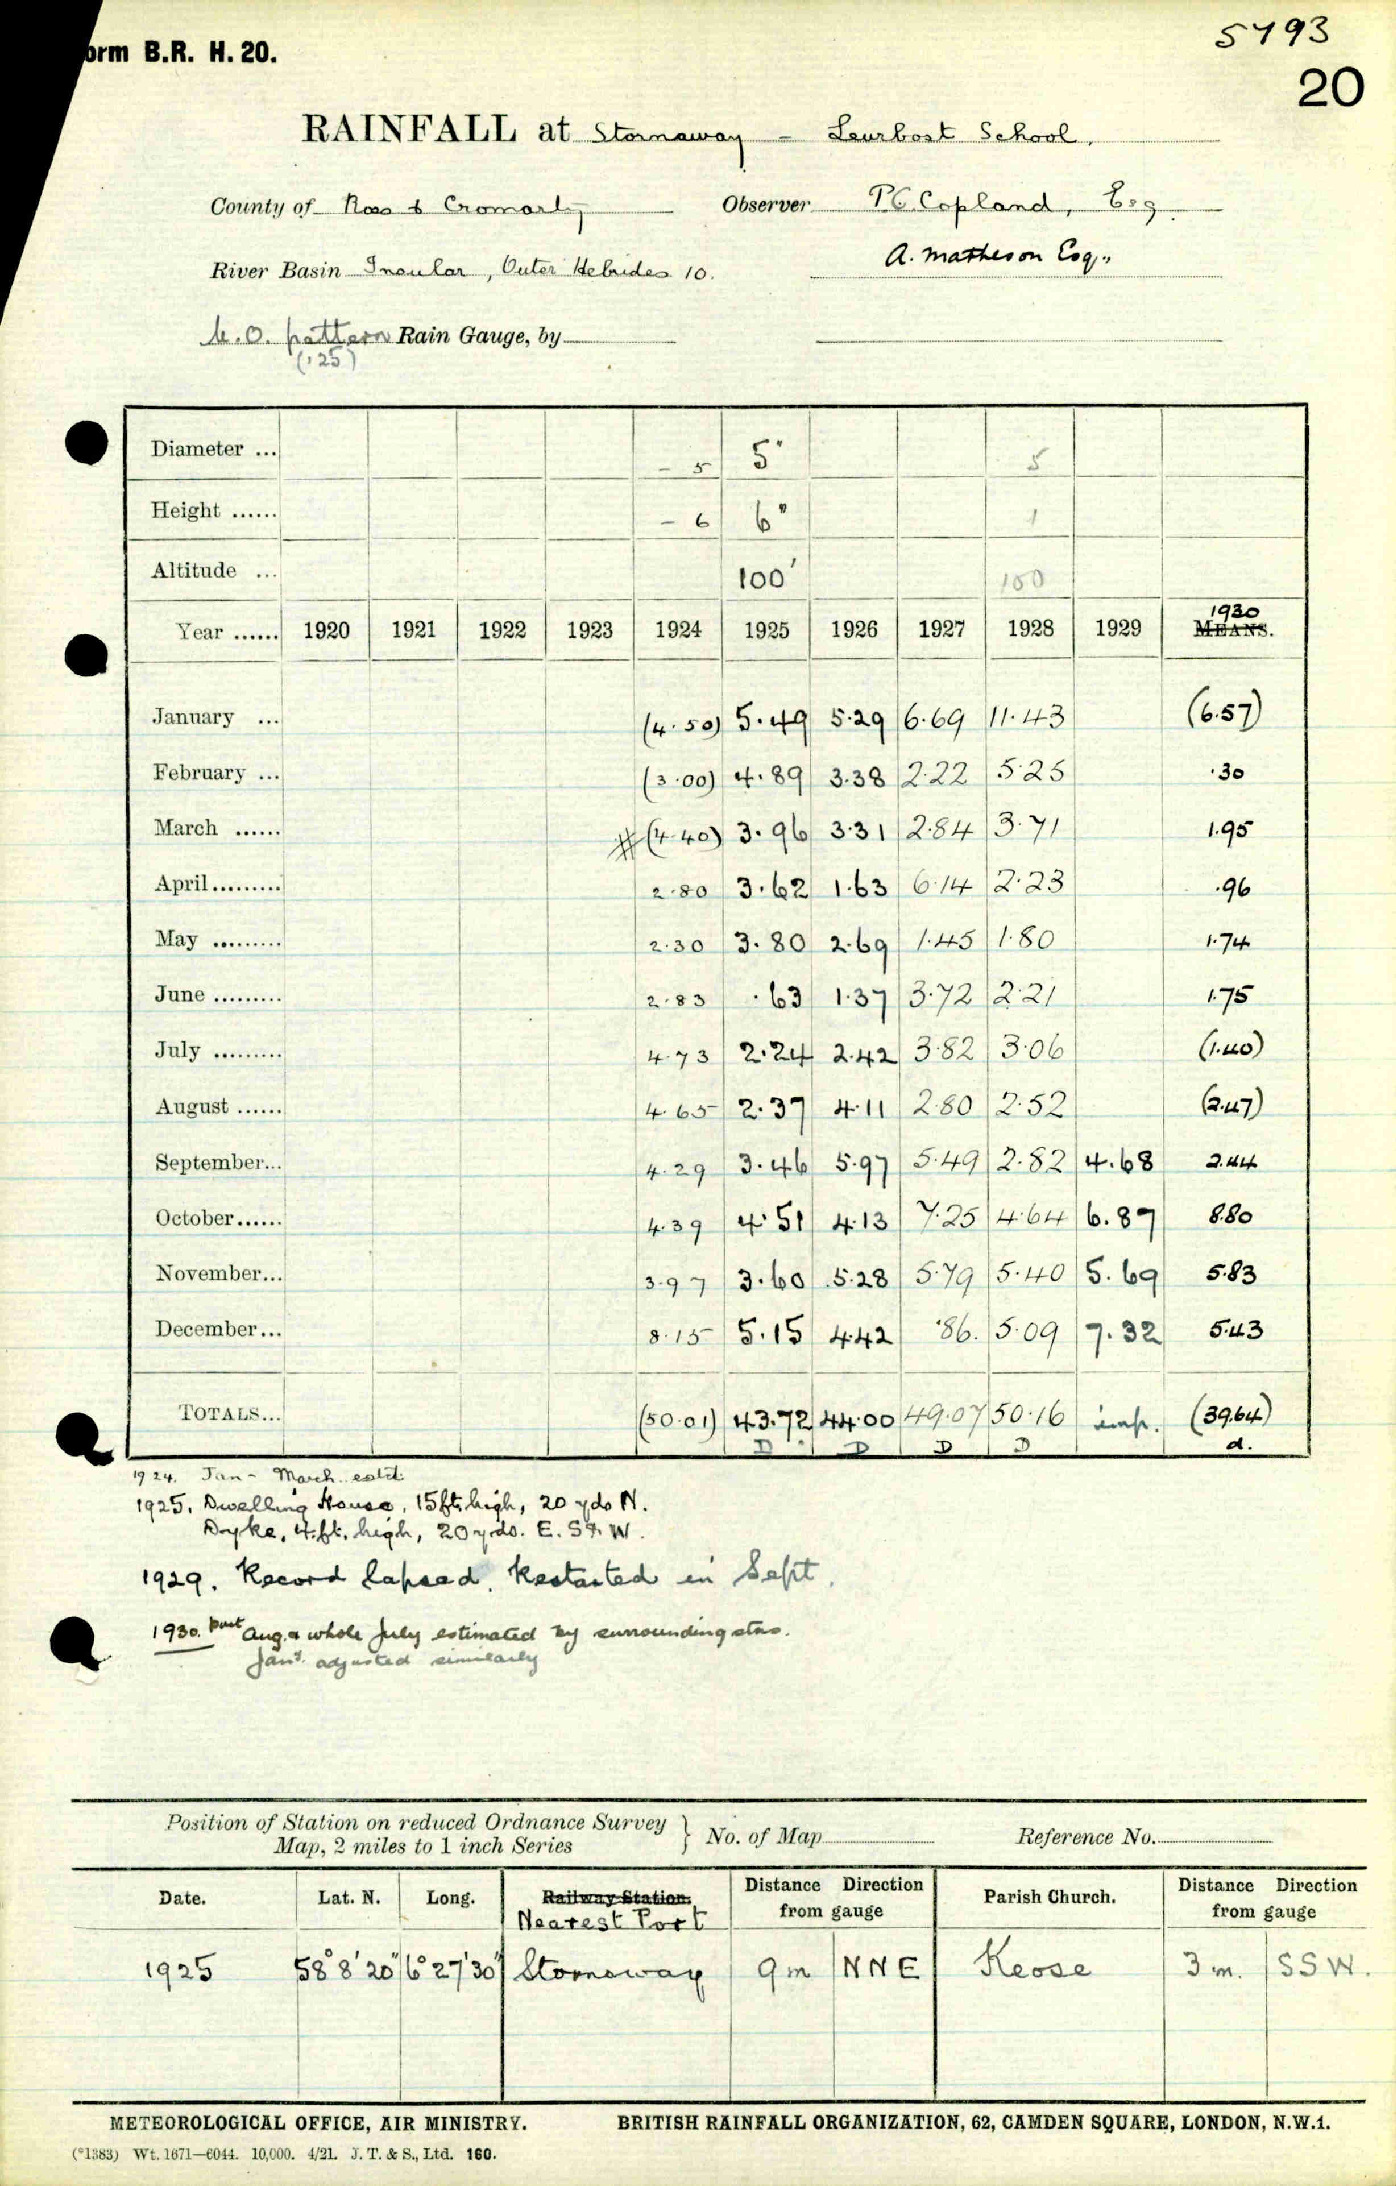 5793
20
orm B.R. H. 20.
RAINFALL at Stornaway – Leurbost School.
County of Ross & Cromarty Observer P.C. Copland, Esq.
River Basin Insular, Outer Hebrides 10. A. Matheson Esq.,
M.O. pattern Rain Gauge, by
(125)
Diameter ... – 5 5" 5
Height ...... – 6 6" 1
Altitude ... 100' 100
Year ...... 1920 1921 1922 1923 1924 1925 1926 1927 1928 1929 1930 MEANS.
January ... (4.50) 5.49 5.29 6.69 11.43 (6.57)
February ... (3.00) 4.89 3.38 2.22 5.25 .30
March ...... # (4.40) 3.96 3.31 2.84 3.71 1.95
April......... 2.80 3.62 1.63 6.14 2.23 .96
May ......... 2.30 3.80 2.69 1.45 1.80 1.74
June ......... 2.83 .63 1.37 3.72 2.21 1.75
July ......... 4.73 2.24 2.42 3.82 3.06 (1.40)
August ...... 4.65 2.37 4.11 2.80 2.52 (2.47)
September... 4.29 3.46 5.97 5.49 2.82 4.68 2.44
October...... 4.39 4.51 4.13 7.25 4.64 6.87 8.80
November... 3.97 3.60 5.28 5.79 5.40 5.69 5.83
December... 8.15 5.15 4.42 .86. 5.09 7.32 5.43
TOTALS... (50.01) 43.72 44.00 49.07 50.16 imp. (39.64)
D D D D d.
1924. Jan – March estd.
1925. Dwelling House, 15ft. high, 20 yds N.
Dyke, 4.ft. high, 20 yds. E. S & W.
1929. Record lapsed. Restarted in Sept.
1930. part Aug. & whole July estimated by surrounding stns.
Jany. adjusted similarly
Position of Station on reduced Ordnance Survey
Map, 2 miles to 1 inch Series } No. of Map Reference No.
Date. Lat. N. Long. Railway Station. Distance Direction from gauge Parish Church. Distance Direction from gauge
Nearest Port
1925 58° 8' 20" 6° 27' 30" Stornoway 9 m NNE Keose 3 m. SSW.
METEOROLOGICAL OFFICE, AIR MINISTRY. BRITISH RAINFALL ORGANIZATION, 62, CAMDEN SQUARE, LONDON, N.W.1.
(*1383) Wt. 1671—6044. 10,000. 4/21. J. T. & S., Ltd. 160.